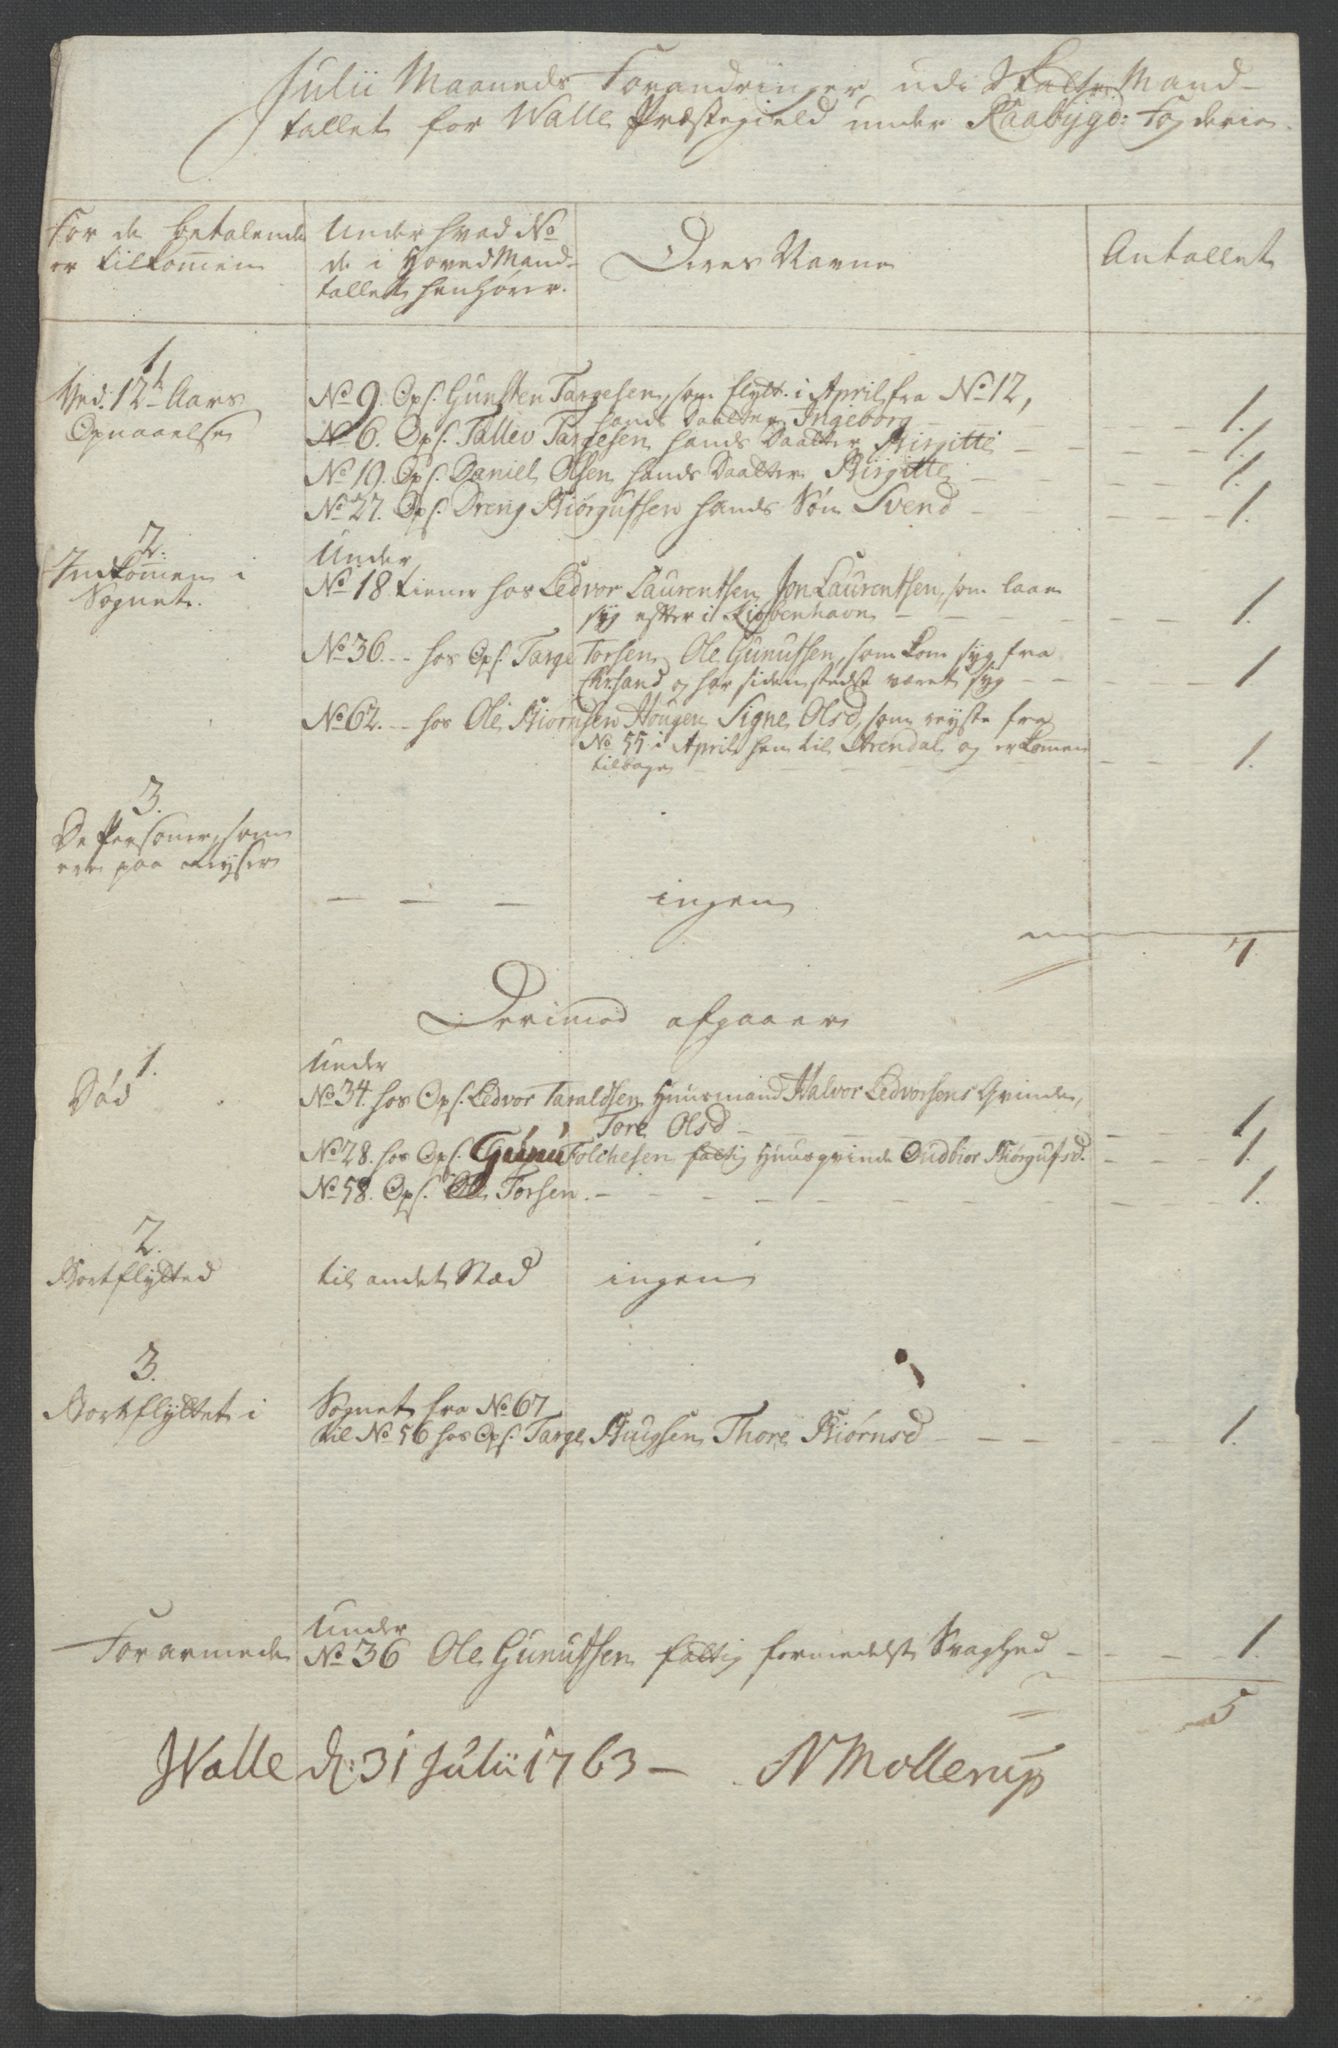 Julii Maaneds Forandringer udi Skatte Mand-
tallet for Walle Præstegield under Raabygd: Fogderie.
For de betalende
er tilkom̄en
Under hvad No
de i Hoved Mand-
tallet henhörer.
Deres Navne
Antallet
1.
Ved 12te Aars
Opnaaelse
No 9. Ops. Gunsten Targesen, som flytt. i April fra No 12,
hands Daatter Ingeborg - - - 1.
No 6. Ops. Tallev Targesen hands Daatter Birgitte - - - 1.
No 19. Ops. Daniel Olsen hands Daatter Birgitte - - - 1.
No 27. Ops. Dreng Biörgufsen hands Sön Svend - - - 1.
2.
Indkom̄en i
Sognet.
Under
No 18 tiener hos Ledvor Laurentsen Jon Laurentsen, som laae
syg efter i Kiöbenhavn - - - 1.
No 36. - - hos Ops. Targe Torsen Ole Gunufsen, som kom syg fra
Chrsand og har siden stedse været syg - - - 1
No 62. - - hos Ole Biörnsen Hougen Signe Olsd, som reyste fra
No 55 i April hen til Arendal og er kom̄en
tilbage - - - 1.
3.
De Personer, som
ere paa Reyser
- - - ingen
7.
Derimod afgaaer
1.
Död
Under
No 34. hos Ops. Ledvor Taraldsen Huusmand Halvor Ledvorsens Qvinde,
Tore Olsd - - - 1.
No 28. hos Ops. Gunu Folchesen fattig Huusqvinde Gudbior Biörgufsd. - - 1.
No 58. Ops. Ole Torsen. - - - 1.
2.
Bortflytted
til andet Stæd ingen
3.
Bortflyttet i
Sognet fra No 67
til No 56 hos Ops. Targe Huigsen Thore Biörnsd - - - 1.
Forarmede
Under
No 36 Ole Gunufsen fattig formedelst Svaghed - - - 1.
5
Walle d: 31 Julii 1763 - N Mollerup